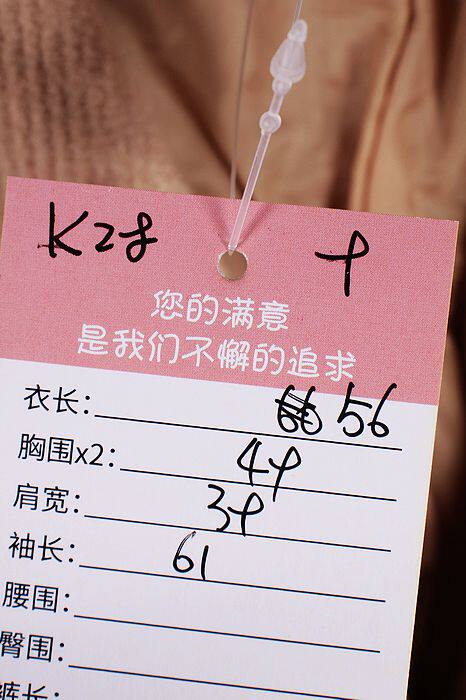 K28 9
您的满意
是我们不懈的追求
衣长: 56
胸围x2: 49
肩宽: 39
袖长: 61
腰围:
臀围:
裤长: